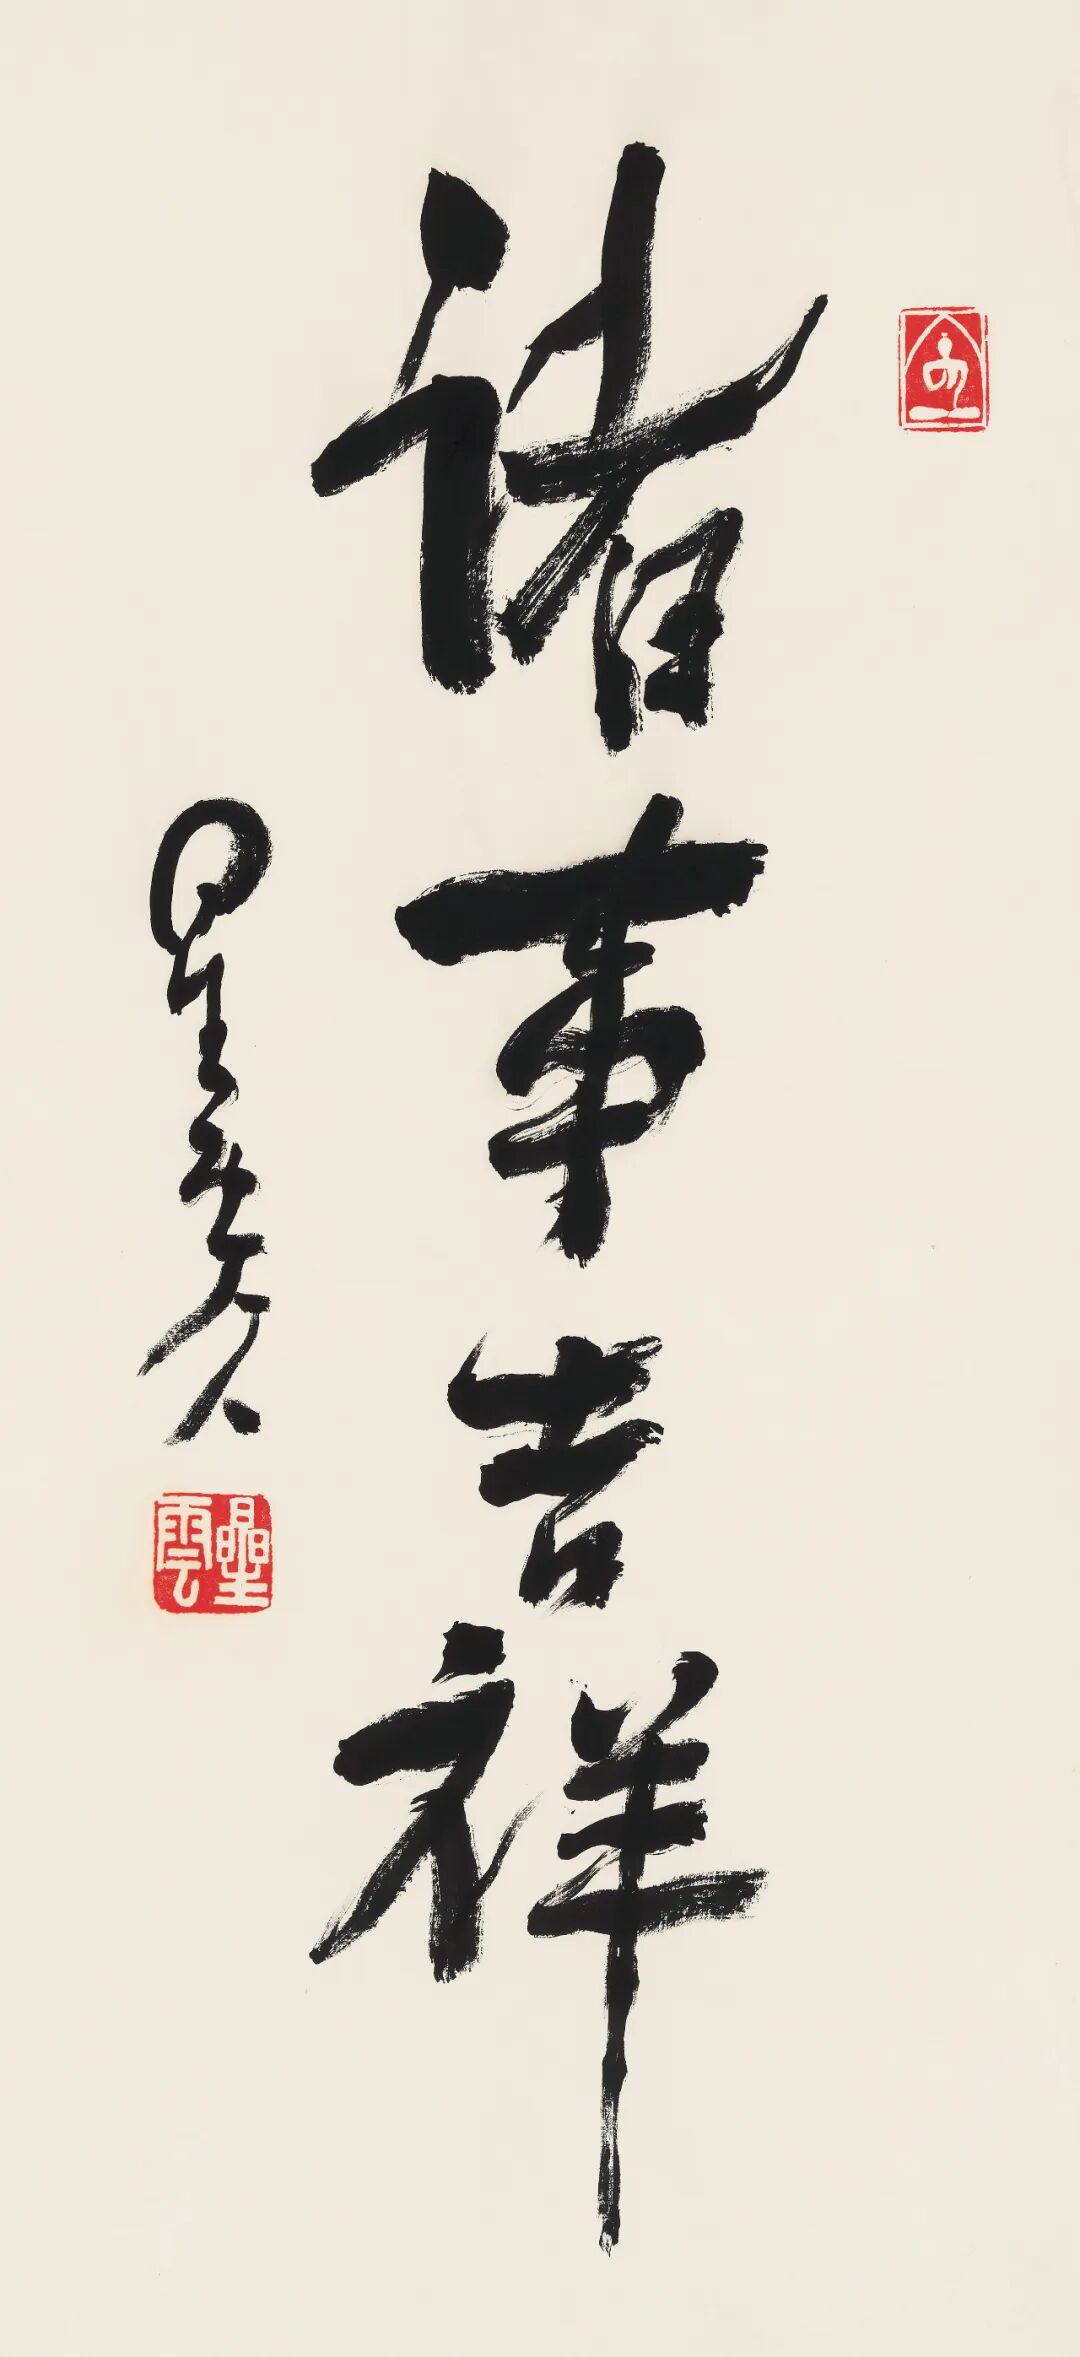 諸事吉祥
星雲
星雲